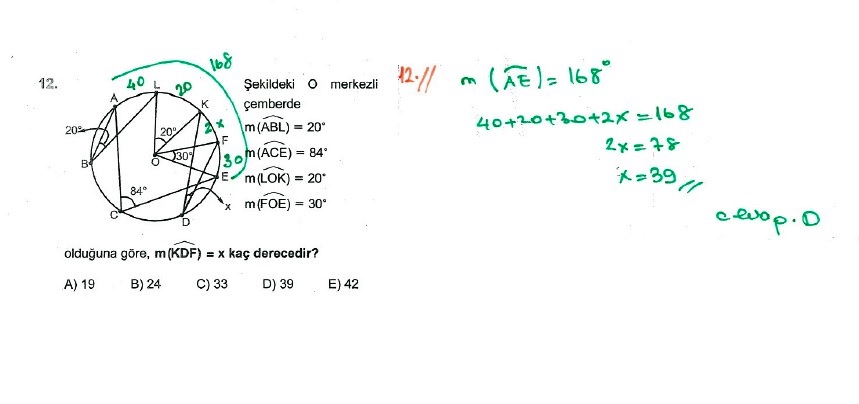 12.
Şekildeki O merkezli
çemberde
m(ABL) = 20°
m(ACE) = 84°
m(LOK) = 20°
m(FOE) = 30°
A
L
K
F
E
D
C
B
O
20°
20°
30°
84°
x
40
20
2x
30
168
olduğuna göre, m(KDF) = x kaç derecedir?
A) 19 B) 24 C) 33 D) 39 E) 42
12.//
m (AE) = 168°
40+20+30+2x = 168
2x = 78
x = 39 //
cevap. D